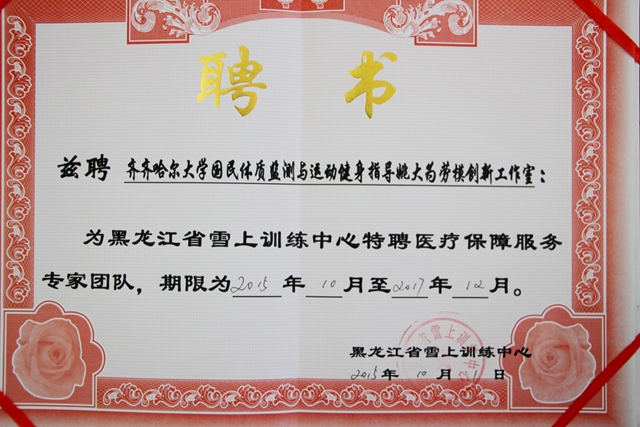 聘书
兹聘 齐齐哈尔大学国民体质监测与运动健身指导姚大为劳模创新工作室：
为黑龙江省雪上训练中心特聘医疗保障服务
专家团队，期限为2015年10月至2017年12月。
黑龙江省雪上训练中心
2015年10月1日